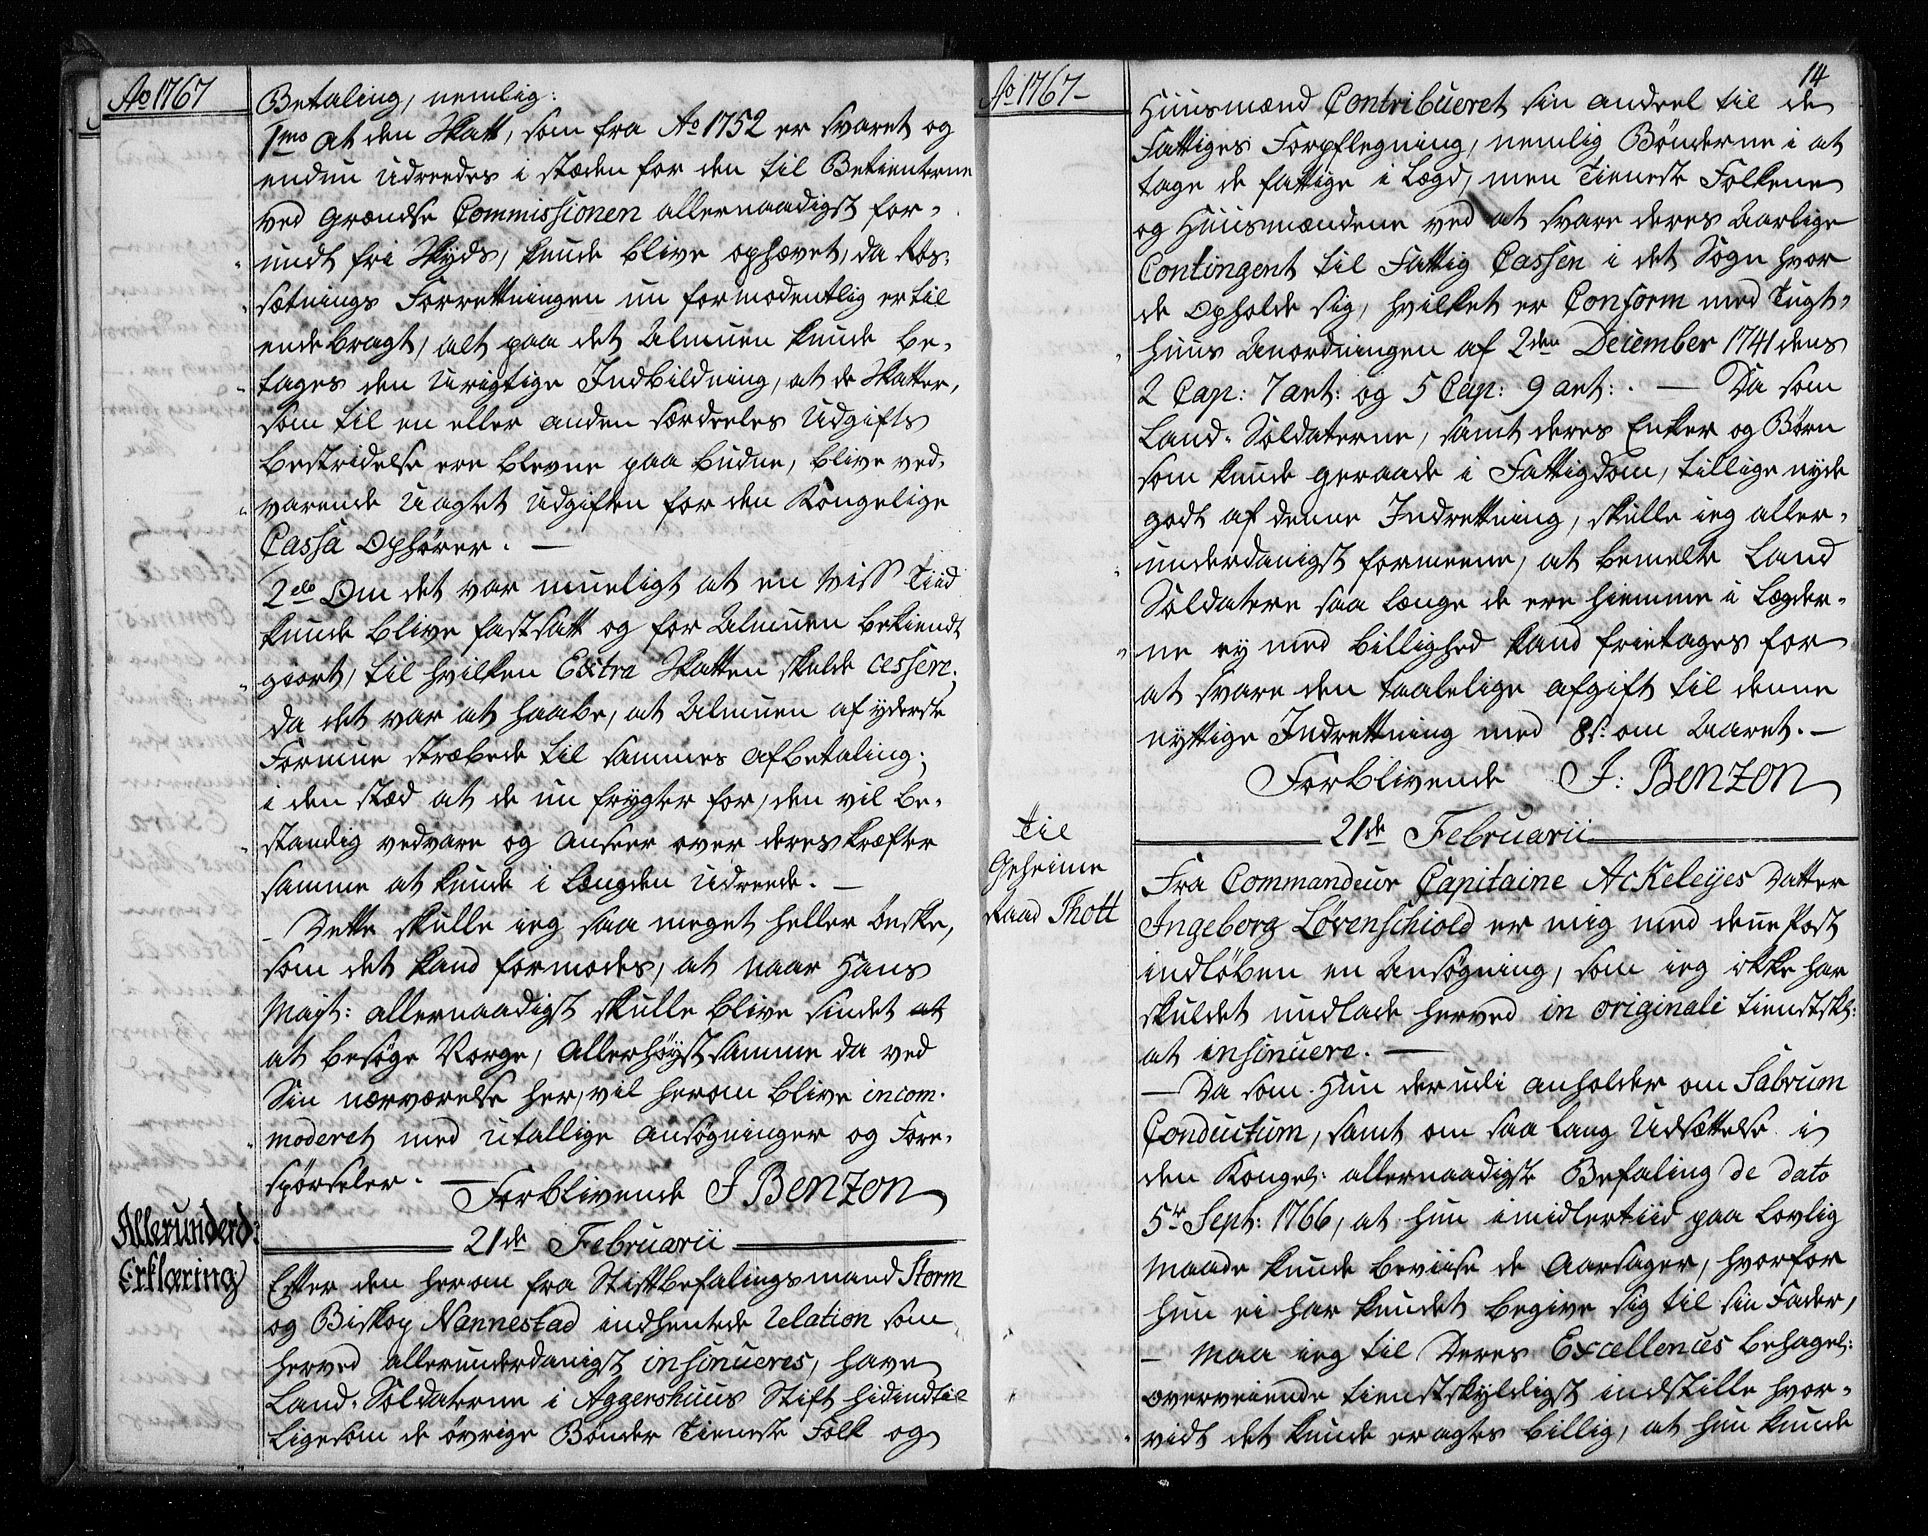 Ao 1767
Betaling, nemlig:
1mo At den Skatt, som fra Ao 1752 er svaret og
endnu udreedes i stæden for den til Betienterne
ved Grændse Commissionen allernaadigst for-
undt fri Skyds, kunde blive ophævet, da Røs-
sætnings Forrettningen nu formodentlig er til
ende bragt, alt paa det Almuen kunde be-
tages den urigtige Indbildning, at de Skatter,
som til en eller anden særdeeles Udgifts
bestridelse ere blevne paa budne, blive ved-
varende uagtet Udgiften for den Kongelige
Cassa ophører. —
2do Om det var mueligt at en viss Tiid
kunde blive fastsatt og for Almuen bekiendt
giort, til hvilken Extra Skatten skulde cessere;
da det var at haabe, at Almuen af yderste
Formue stræbede til sammes afbetaling;
i den stæd at de nu frygter for, den vil be-
standig vedvare og anseer over deres kræfter
samme at kunde i Længden udreede. —
- Dette skulle ieg saa meget heller ønske,
som det kand formodes, at naar Hans
Majt: allernaadigst skulle blive sindet at
at besøge Norge, Allerhøystsamme da ved
Sin nærværelse her, vil herom blive incom-
moderet med utallige ansøgninger og Fore-
spørseler. — Forblivende J Benzon
21de Februarii
Allerunderd:
Erklæring
Efter den herom fra Stiftbefalingsmand Storm
og Biskop Nannestad indhentede Relation som
herved allerunderdanigst insinueres, have
Land-Soldaterne i Aggershuus Stift hidindtil
ligesom de øvrige Bønder Tieneste Folk og
Ao 1767-
14
Huusmænd Contribueret sin andeel til de
Fattiges Forpflegning, nemlig Bønderne i at
tage de fattige i Lægd, men Tieneste Folkene
og Huusmændene ved at svare deres Aarlige
Contingent til Fattig Cassen i det Sogn hvor
de opholde sig, hvilket er Conform med Tugt-
huus Anordningen af 2den December 1741 dens
2 Cap: 7 art: og 5 Cap: 9 art: . — Da som
Land-Soldaterne, samt deres Enker og Børn
som kunde geraade i Fattigdom, tillige nyde
godt af denne Indrettning, skulle ieg aller-
underdanigst formeene, at bemelte Land
Soldatere saa længe de ere hiemme i Lægder-
ne ey med billighed kand frietages for
at svare den taalelige afgift til denne
nyttige Indrettning med 8s: om Aaret. —
Forblivende J: Benzon
21de Februarii
Til
Geheime
Raad Thott
Fra Commandeur Capitaine Ackeleyes Datter
Ingeborg Løvenschiold er mig med denne Post
indløben en Ansøgning, som ieg ikke har
skuldet undlade herved in originali tienstskl:
at insinuere. —
— Da som Hun derudi anholder om Salvum
Conductum, samt om saa lang Udsættelse i
den Kongel: allernaadigste Befaling de dato
5te Sept: 1766, at hun imidlertiid paa lovlig
maade kunde beviise de Aarsager, hvorfor
hun ei har kundet begive sig til sin Fader,
— Maa ieg til Deres Excellences behagel:
overveiende tienstskyldigst indstille hvor-
vidt det kunde eragtes billig, at hun kunde